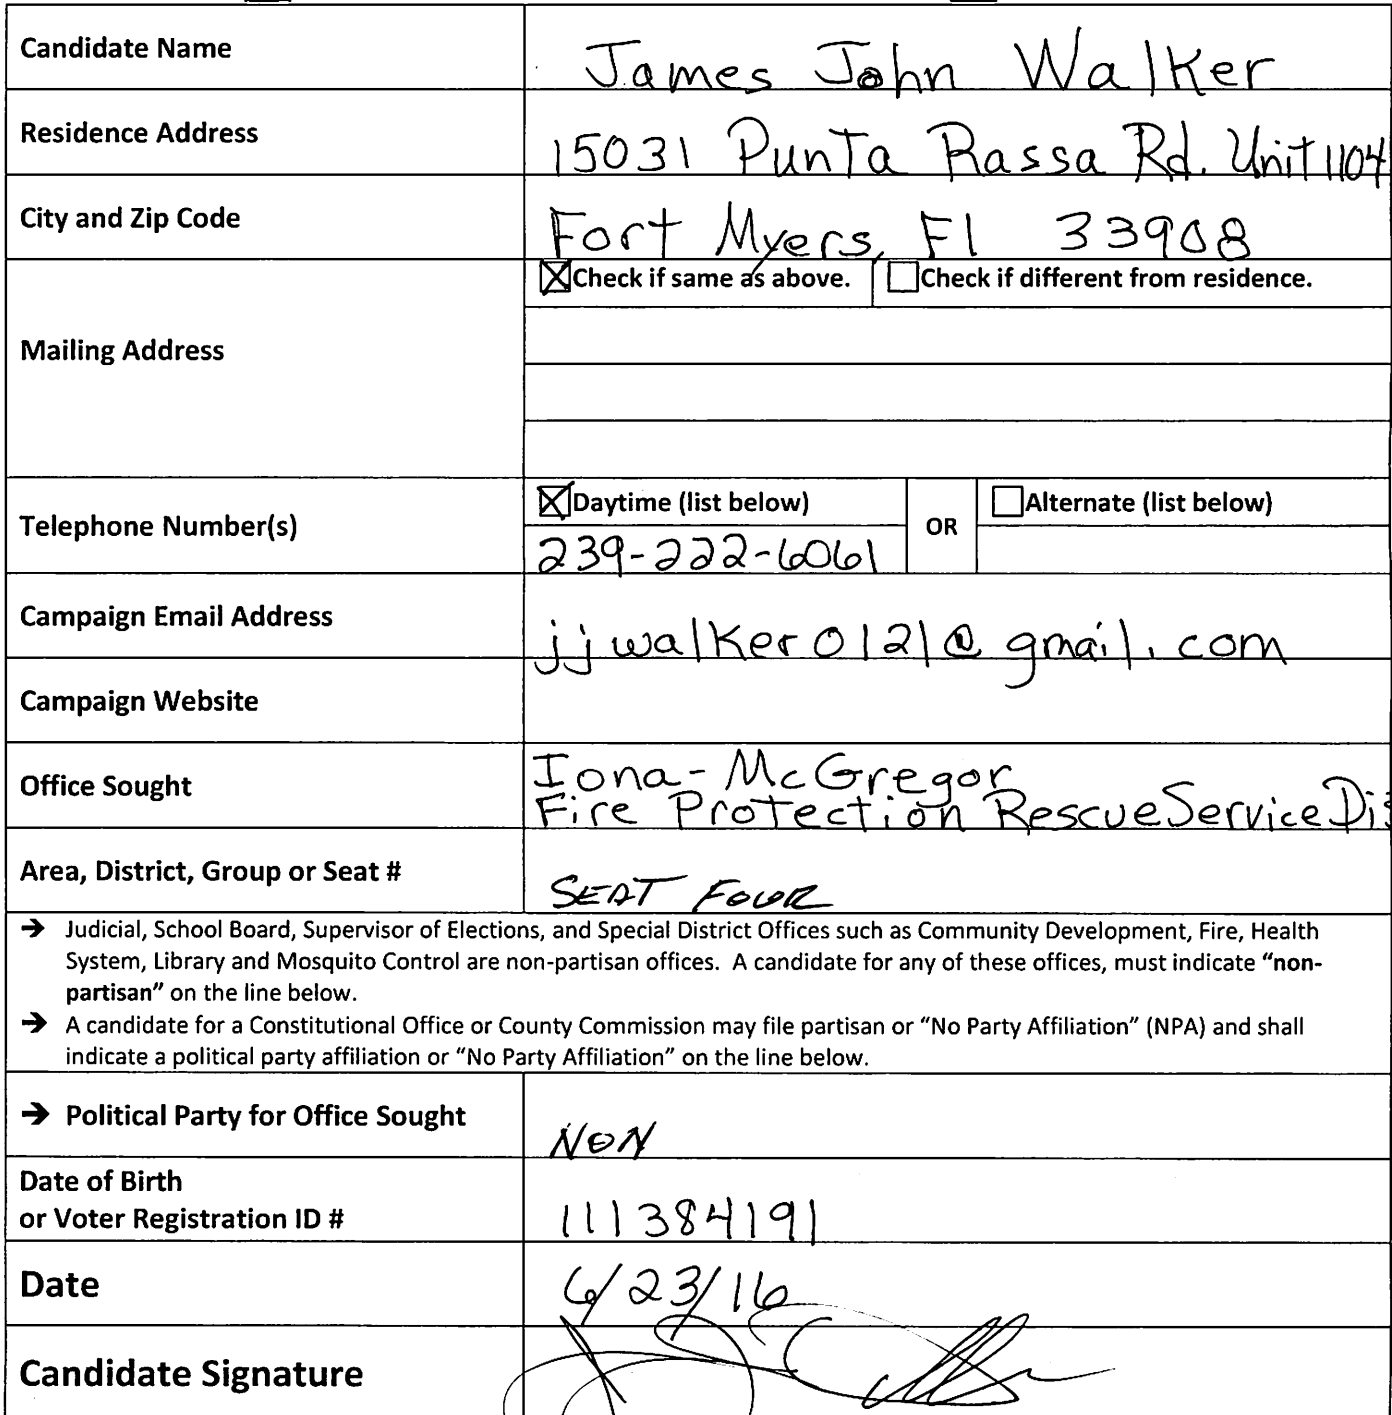 Candidate Name
James John Walker
Residence Address
15031 Punta Rassa Rd. Unit 1104
City and Zip Code
Fort Myers, Fl 33908
Mailing Address
☒ Check if same as above. ☐ Check if different from residence.
Telephone Number(s)
☒ Daytime (list below) OR ☐ Alternate (list below)
239-222-6061
Campaign Email Address
jjwalker0121@gmail.com
Campaign Website
Office Sought
Iona-McGregor
Fire Protection Rescue Service Dis
Area, District, Group or Seat #
SEAT FOUR
→ Judicial, School Board, Supervisor of Elections, and Special District Offices such as Community Development, Fire, Health
System, Library and Mosquito Control are non-partisan offices. A candidate for any of these offices, must indicate "non-
partisan" on the line below.
→ A candidate for a Constitutional Office or County Commission may file partisan or "No Party Affiliation" (NPA) and shall
indicate a political party affiliation or "No Party Affiliation" on the line below.
→ Political Party for Office Sought
NON
Date of Birth
or Voter Registration ID #
111384191
Date
6/23/16
Candidate Signature